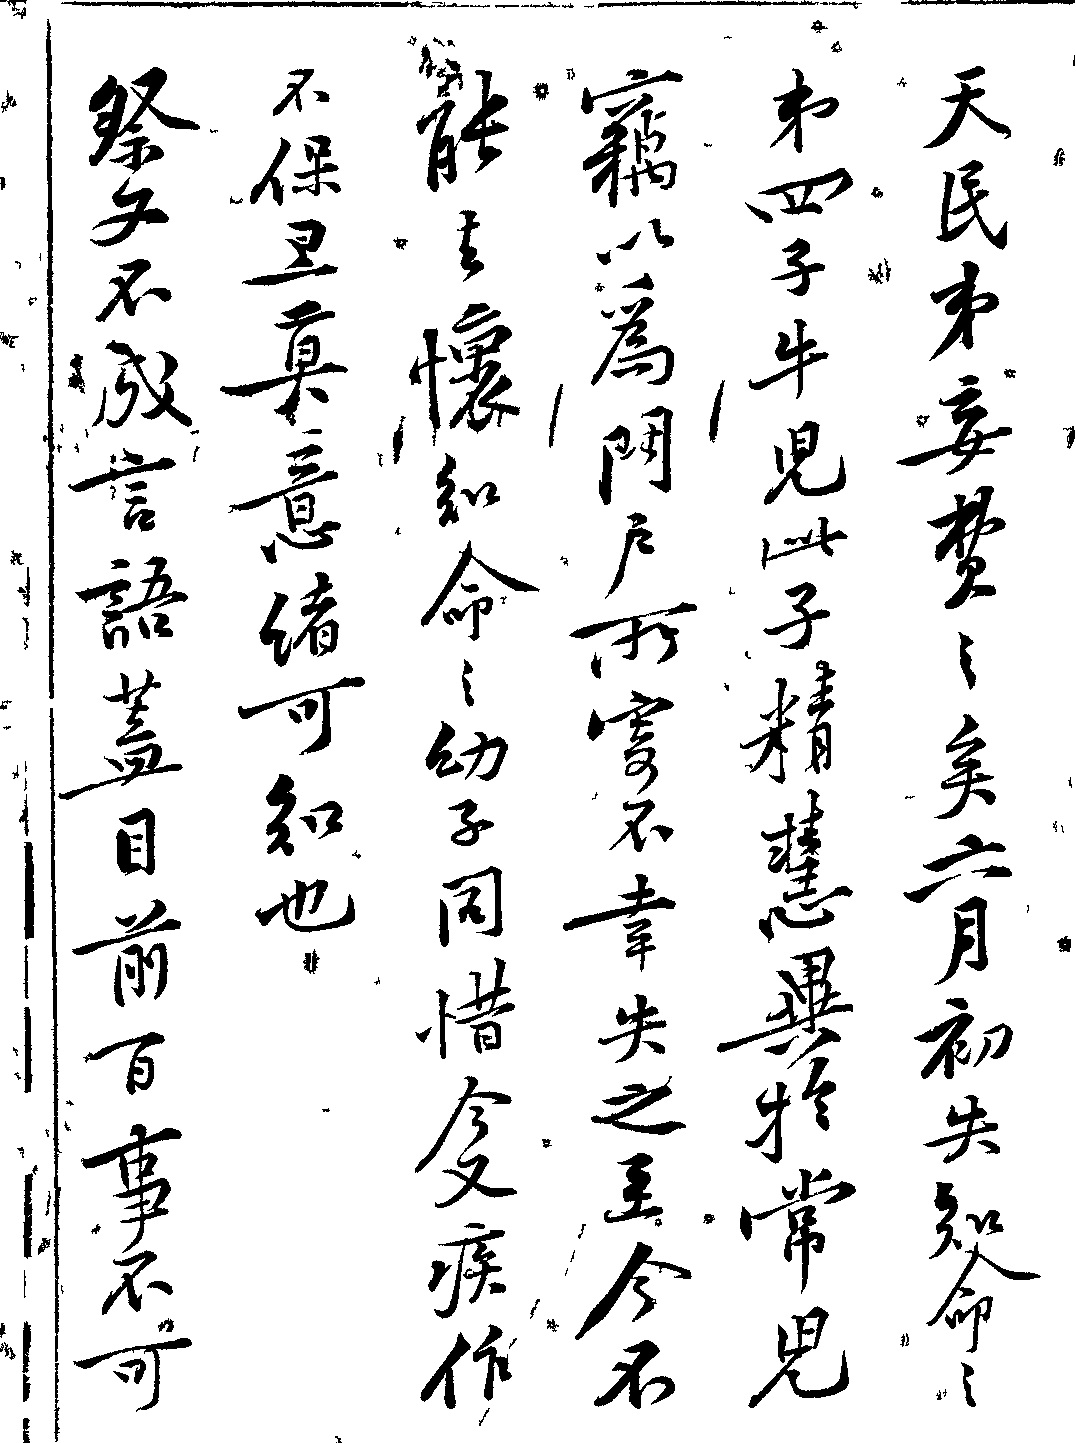 天民弟妄費之矣六月初失知命之
弟四子牛兒此子精慧異於常兒
竊以爲門戶所寄不幸失之至今不
能去懷知命之幼子同惜今又疾作
不保旦莫意緒可知也
祭文不成言語蓋目前百事不可